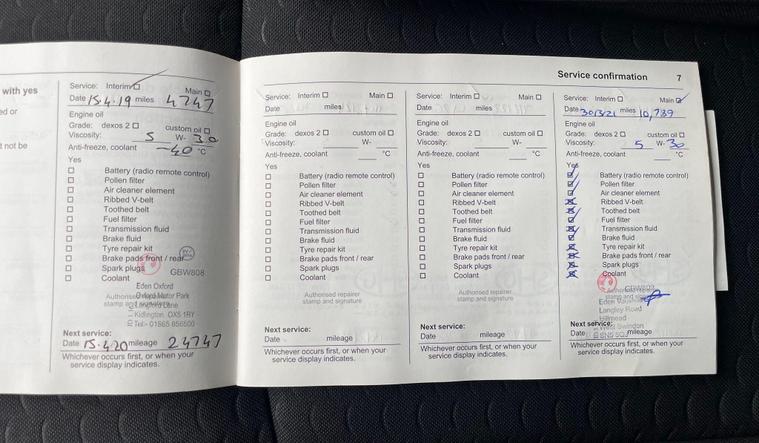 Service confirmation 7
with yes
ed or
t not be
Service: Interim Main
Date 15.4.19 miles 4747
Engine oil
Grade: dexos 2 custom oil
Viscosity: 5 W- 30
Anti-freeze, coolant -40 °C
Yes
Battery (radio remote control)
Pollen filter
Air cleaner element
Ribbed V-belt
Toothed belt
Fuel filter
Transmission fluid
Brake fluid
Tyre repair kit
Brake pads front / rear
Spark plugs
Coolant
GBW808
Eden Oxford
Authorised
Oxford Motor Park
stamp and signature
Langford Lane
Kidlington OX5 1RY
Tel - 01865 856500
Next service:
Date 15.4.20 mileage 24747
Whichever occurs first, or when your
service display indicates.
Service: Interim Main
Date miles
Engine oil
Grade: dexos 2 custom oil
Viscosity: W-
Anti-freeze, coolant °C
Yes
Battery (radio remote control)
Pollen filter
Air cleaner element
Ribbed V-belt
Toothed belt
Fuel filter
Transmission fluid
Brake fluid
Tyre repair kit
Brake pads front / rear
Spark plugs
Coolant
Authorised repairer
stamp and signature
Next service:
Date mileage
Whichever occurs first, or when your
service display indicates.
Service: Interim Main
Date miles
Engine oil
Grade: dexos 2 custom oil
Viscosity: W-
Anti-freeze, coolant °C
Yes
Battery (radio remote control)
Pollen filter
Air cleaner element
Ribbed V-belt
Toothed belt
Fuel filter
Transmission fluid
Brake fluid
Tyre repair kit
Brake pads front / rear
Spark plugs
Coolant
Authorised repairer
stamp and signature
Next service:
Date mileage
Whichever occurs first, or when your
service display indicates.
Service: Interim Main
Date 30/3/21 miles 10,739
Engine oil
Grade: dexos 2 custom oil
Viscosity: 5 W- 30
Anti-freeze, coolant °C
Yes
Battery (radio remote control)
Pollen filter
Air cleaner element
Ribbed V-belt
Toothed belt
Fuel filter
Transmission fluid
Brake fluid
Tyre repair kit
Brake pads front / rear
Spark plugs
Coolant
Authorised
stamp and
Eden
Langley Road
Hillmead
Swindon
Next service:
Date mileage
Whichever occurs first, or when your
service display indicates.